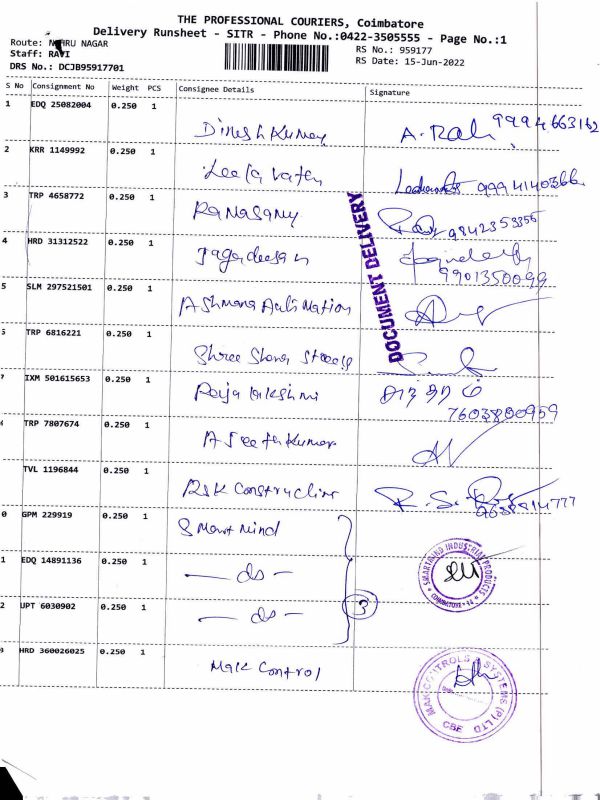 THE PROFESSIONAL COURIERS, Coimbatore
Delivery Runsheet - SITR - Phone No.:0422-3505555 - Page No.:1
Route: NEHRU NAGAR
Staff: RAVI
DRS No.: DCJB95917701
RS No.: 959177
RS Date: 15-Jun-2022
S No Consignment No Weight PCS Consignee Details Signature
1 EDQ 25082004 0.250 1 Dinesh Kumar 9994663162
2 KRR 1149992 0.250 1 Leelavathy 9994140366
3 TRP 4658772 0.250 1 Ramasamy 9842353355
4 HRD 31312522 0.250 1 Jagadeesan 9901350099
5 SLM 297521501 0.250 1 Automation
TRP 6816221 0.250 1 Shree
7 IXM 501615653 0.250 1 7603800959
TRP 7807674 0.250 1 Kumar
TVL 1196844 0.250 1 RSK Construction R.S.
0 GPM 229919 0.250 1 Smart Mind
1 EDQ 14891136 0.250 1 — do —
2 UPT 6030902 0.250 1 — do — 3
HRD 360026025 0.250 1 Mak Control
DOCUMENT DELIVERY
SMARTMIND INDUSTRIAL PRODUCTS
COIMBATORE
MAK CONTROLS & SYSTEMS (P) LTD
CBE